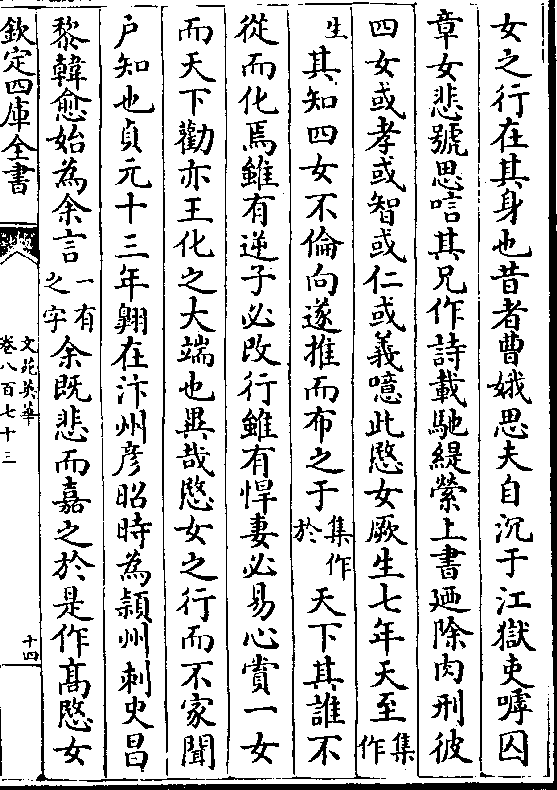 女之行在其身也昔者曹娥思夫自沉于江獄吏嘑囚
章女悲號思唁其兄作詩載馳緹縈上書廼除肉刑彼
四女或孝或智或仁或義噫此愍女厥生七年天至集作
生其知四女不倫向遂推而布之于集作於天下其誰不
從而化焉雖有逆子必改行雖有悍妻必易心賞一女
而天下勸亦王化之大端也異哉愍女之行而不家聞
户知也貞元十三年翺在汴州彦昭時為潁州刺史昌
黎韓愈始為余言一有之字余既悲而嘉之於是作髙愍女
欽定四庫全書
文苑英華
卷八百七十三
十四